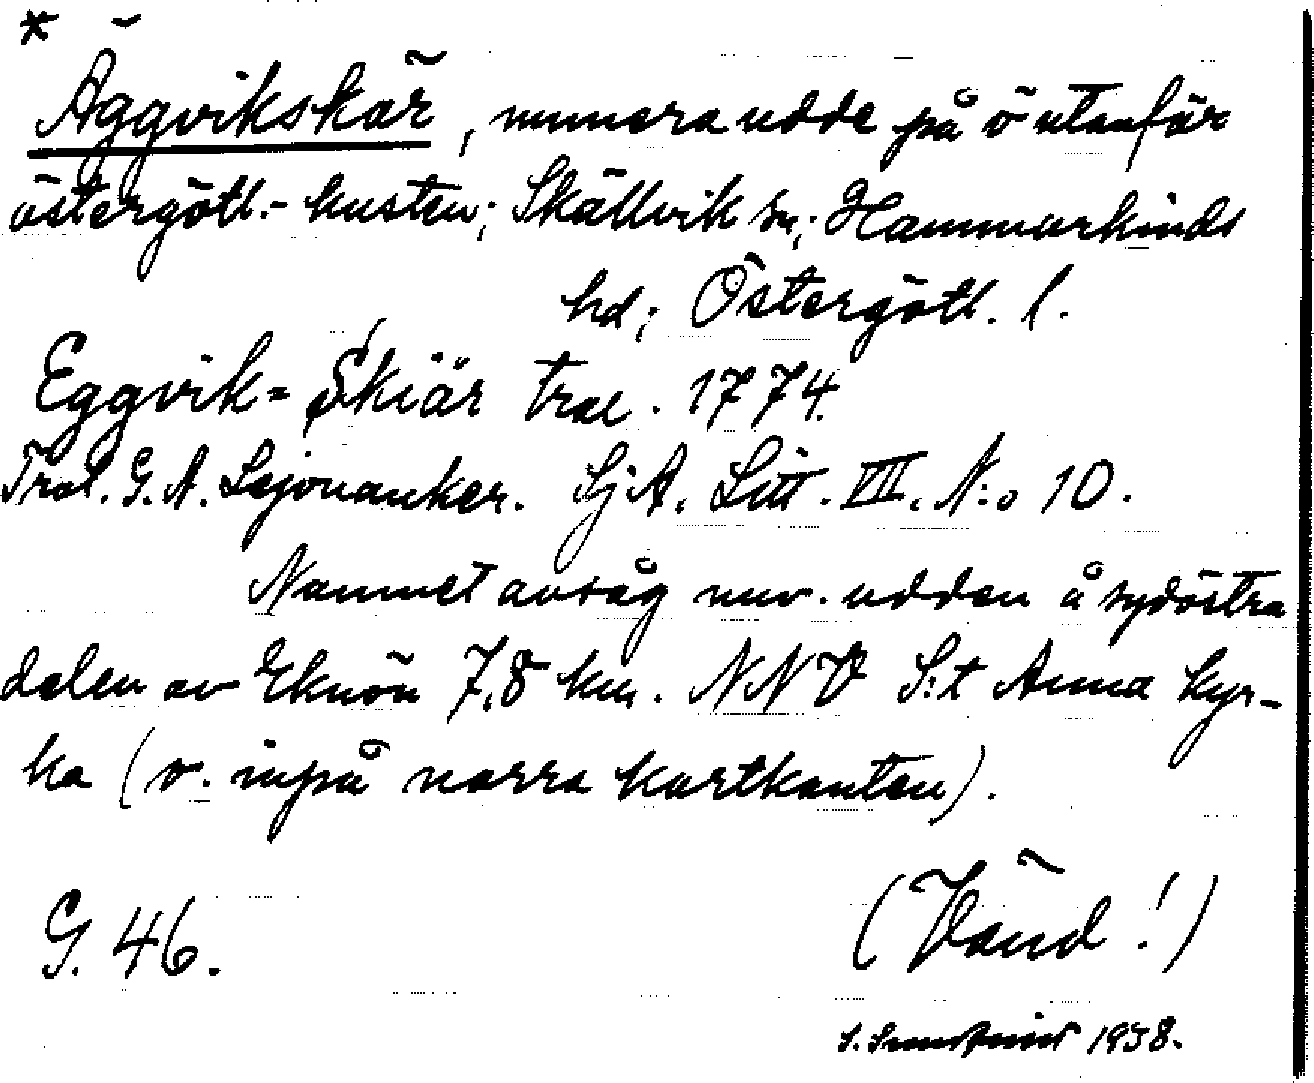 *
Äggvikskär, numera udde på ö utanför
östergötl.- kusten; Skällvik sn; Hammarkinds
hd; Östergötl. l.
Eggvik= Skiär trol. 1774.
Trol. G. A. Lejonanker. SjA, Litt. VII. N:o 10.
Namnet avsåg nuv. udden å sydöstra
delen av Eknön 7,8 km. NNV S:t Anna kyr-
ka (v. inpå norra kartkanten).
G. 46.
(Vänd!)
S. 1938.